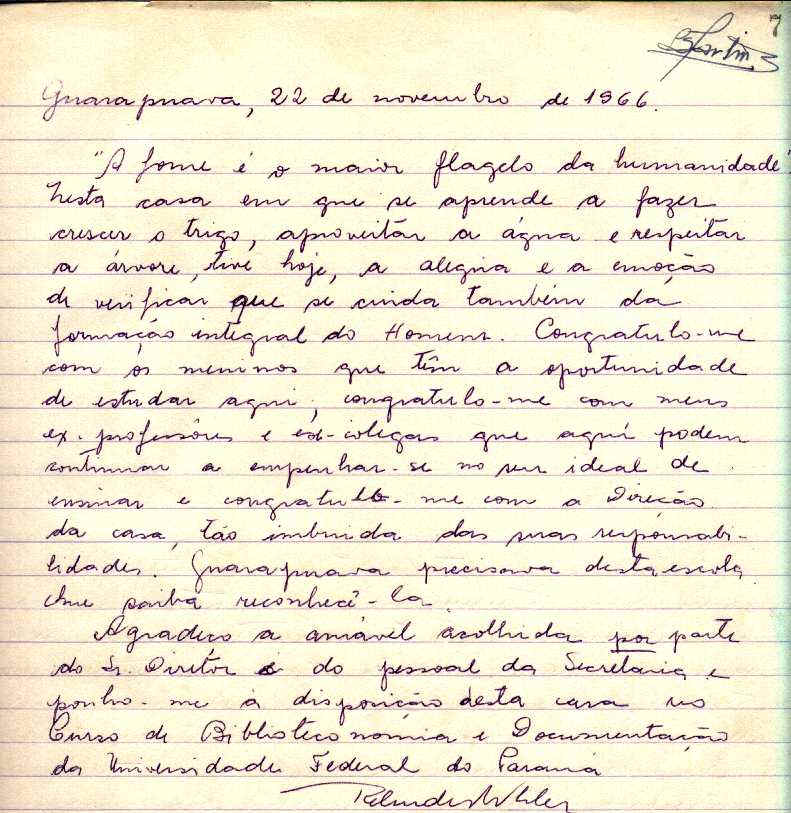 7
Guarapuava, 22 de novembro de 1966.
"A fome é o maior flagelo da humanidade".
Nesta casa em que se aprende a fazer
crescer o trigo, aproveitar a água e respeitar
a árvore, tive hoje, a alegria e a emoção
de verificar que se cuida também da
formação integral do Homem. Congratulo-me
com os meninos que têm a oportunidade
de estudar aqui, congratulo-me com meus
ex-professôres e ex-colegas que aqui podem
continuar a empenhar-se no seu ideal de
ensinar e congratulo-me com a Direção
da casa, tão imbuida das suas responsabi-
lidades. Guarapuava precisava desta escola.
Que saiba reconhecê-la.
Agradeço a amável acolhida por parte
do Sr. Diretôr e do pessoal da Secretaria e
ponho-me à disposição desta casa no
Curso de Biblioteconomia e Documentação
da Universidade Federal do Paraná